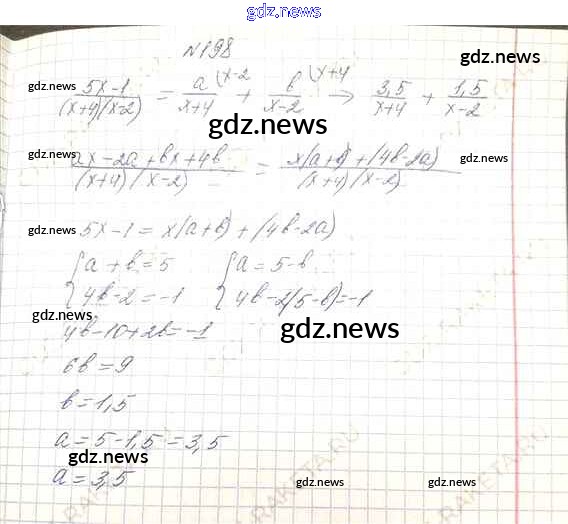 gdz.news
N198
gdz.news
gdz.news 5x-1/(x+4)(x-2) = a/x+4 (x-2 + b/x-2 (x+4 → 3,5/x+4 + 1,5/x-2 gdz.news
gdz.news
gdz.news ax-2a+bx+4b/(x+4)(x-2) = x(a+b)+(4b-2a)/(x+4)(x-2) gdz.news
gdz.news 5x-1 = x(a+b)+(4b-2a)
{a+b=5 {a=5-b
{4b-2=-1 {4b-2(5-b)=-1
gdz.news
4b-10+2b=-1 gdz.news
6b=9
b=1,5
a=5-1,5=3,5
gdz.news
a=3,5 gdz.news gdz.news
RAKETA.RU